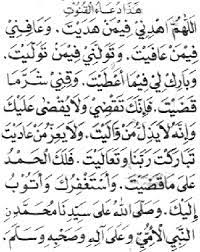 هٰذَا دُعَاءُ الْقُنُوْتِ
اَللّٰهُمَّ اهْدِنِيْ فِيْمَنْ هَدَيْتَ. وَعَافِنِيْ
فِيْمَنْ عَافَيْتَ. وَتَوَلَّنِيْ فِيْمَنْ تَوَلَّيْتَ.
وَبَارِكْ لِيْ فِيْمَا اَعْطَيْتَ. وَقِنِيْ شَرَّمَا
قَضَيْتَ. فَاِنَّكَ تَقْضِيْ وَلَا يُقْضٰى عَلَيْكَ
وَاِنَّهُ لَا يَذِلُّ مَنْ وَالَيْتَ. وَلَا يَعِزُّ مَنْ عَادَيْتَ
تَبَارَكْتَ رَبَّنَا وَتَعَالَيْتَ. فَلَكَ الْحَمْدُ
عَلٰى مَا قَضَيْتَ. وَاَسْتَغْفِرُكَ وَاَتُوْبُ
اِلَيْكَ. وَصَلَّى اللهُ عَلٰى سَيِّدِنَا مُحَمَّدٍنِ
النَّبِيِّ الْاُمِّيِّ وَعَلٰى اٰلِهِ وَصَحْبِهِ وَسَلَّمَ.